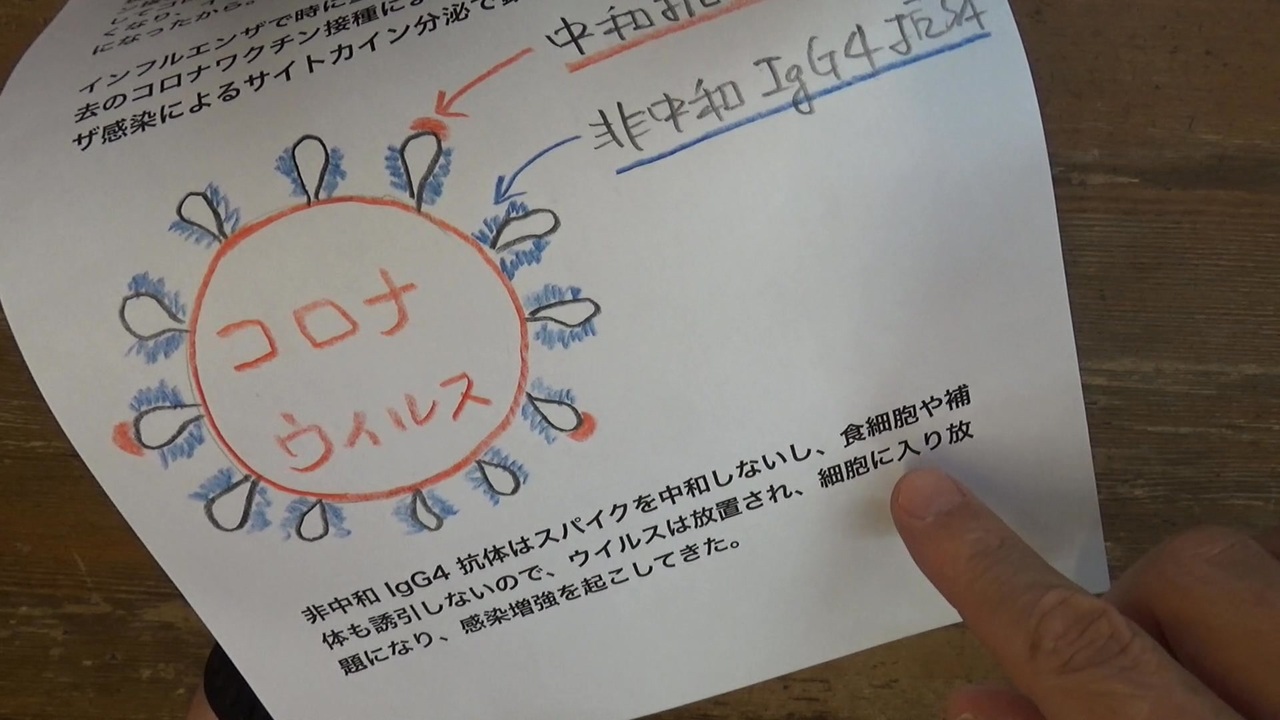 になったから。
インフルエンザで時に
去のコロナワクチン接種によ
ザ感染によるサイトカイン分泌で
中和
非中和 IgG4 抗体
コロナ
ウィルス
非中和 IgG4 抗体はスパイクを中和しないし、食細胞や補
体も誘引しないので、ウイルスは放置され、細胞に入り放
題になり、感染増強を起こしてきた。